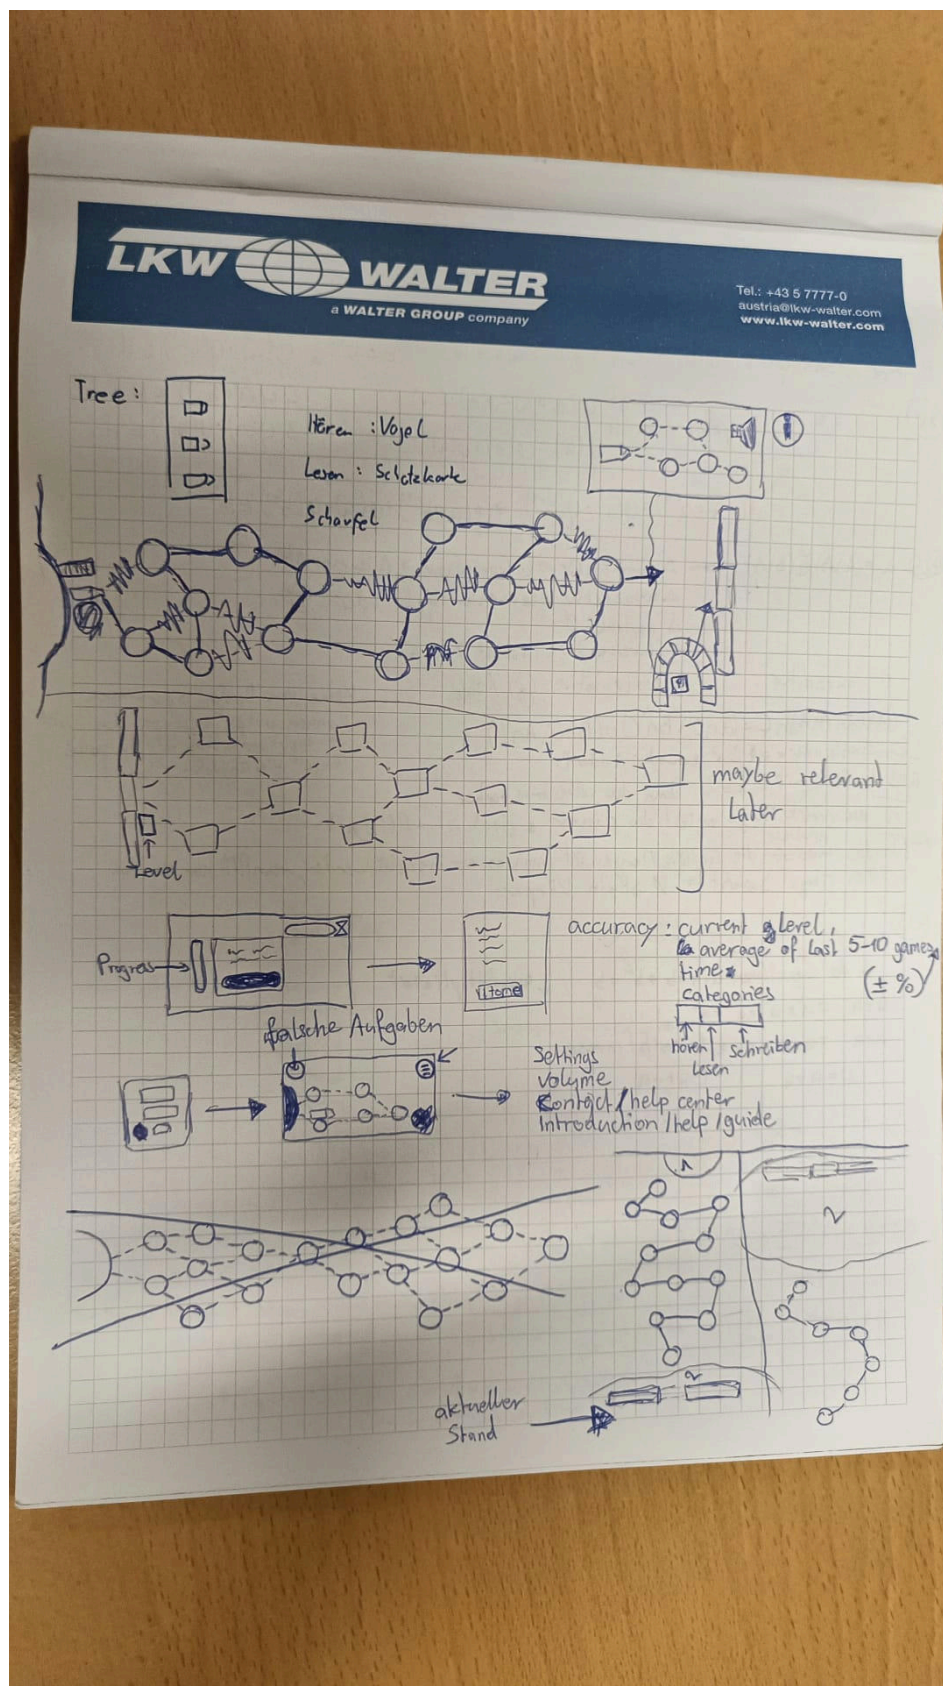 LKW WALTER
a WALTER GROUP company
Tel.: +43 5 7777-0
austria@lkw-walter.com
www.lkw-walter.com
Tree:
Hören : Vogel
Lesen : Schatzkarte
Schaufel
maybe relevant
later
Level
Progress
Home
accuracy : current level,
average of last 5-10 games
time
(± %)
categories
hören
lesen
schreiben
falsche Aufgaben
Settings
Volume
Contact/help center
Introduction/help/guide
1
2
2
aktueller
Stand